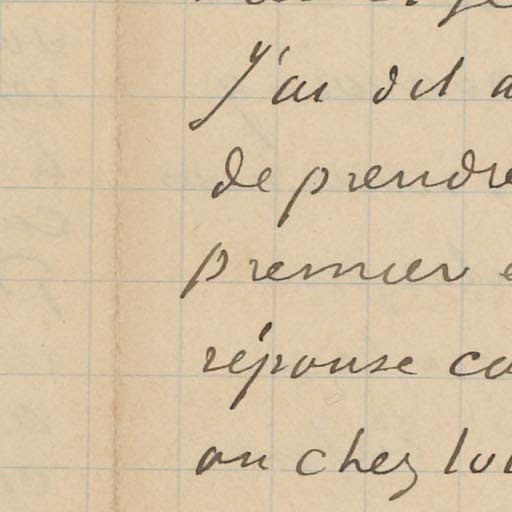 J'ai dit a
de prendre
premier e
réponse co
ou chez lui